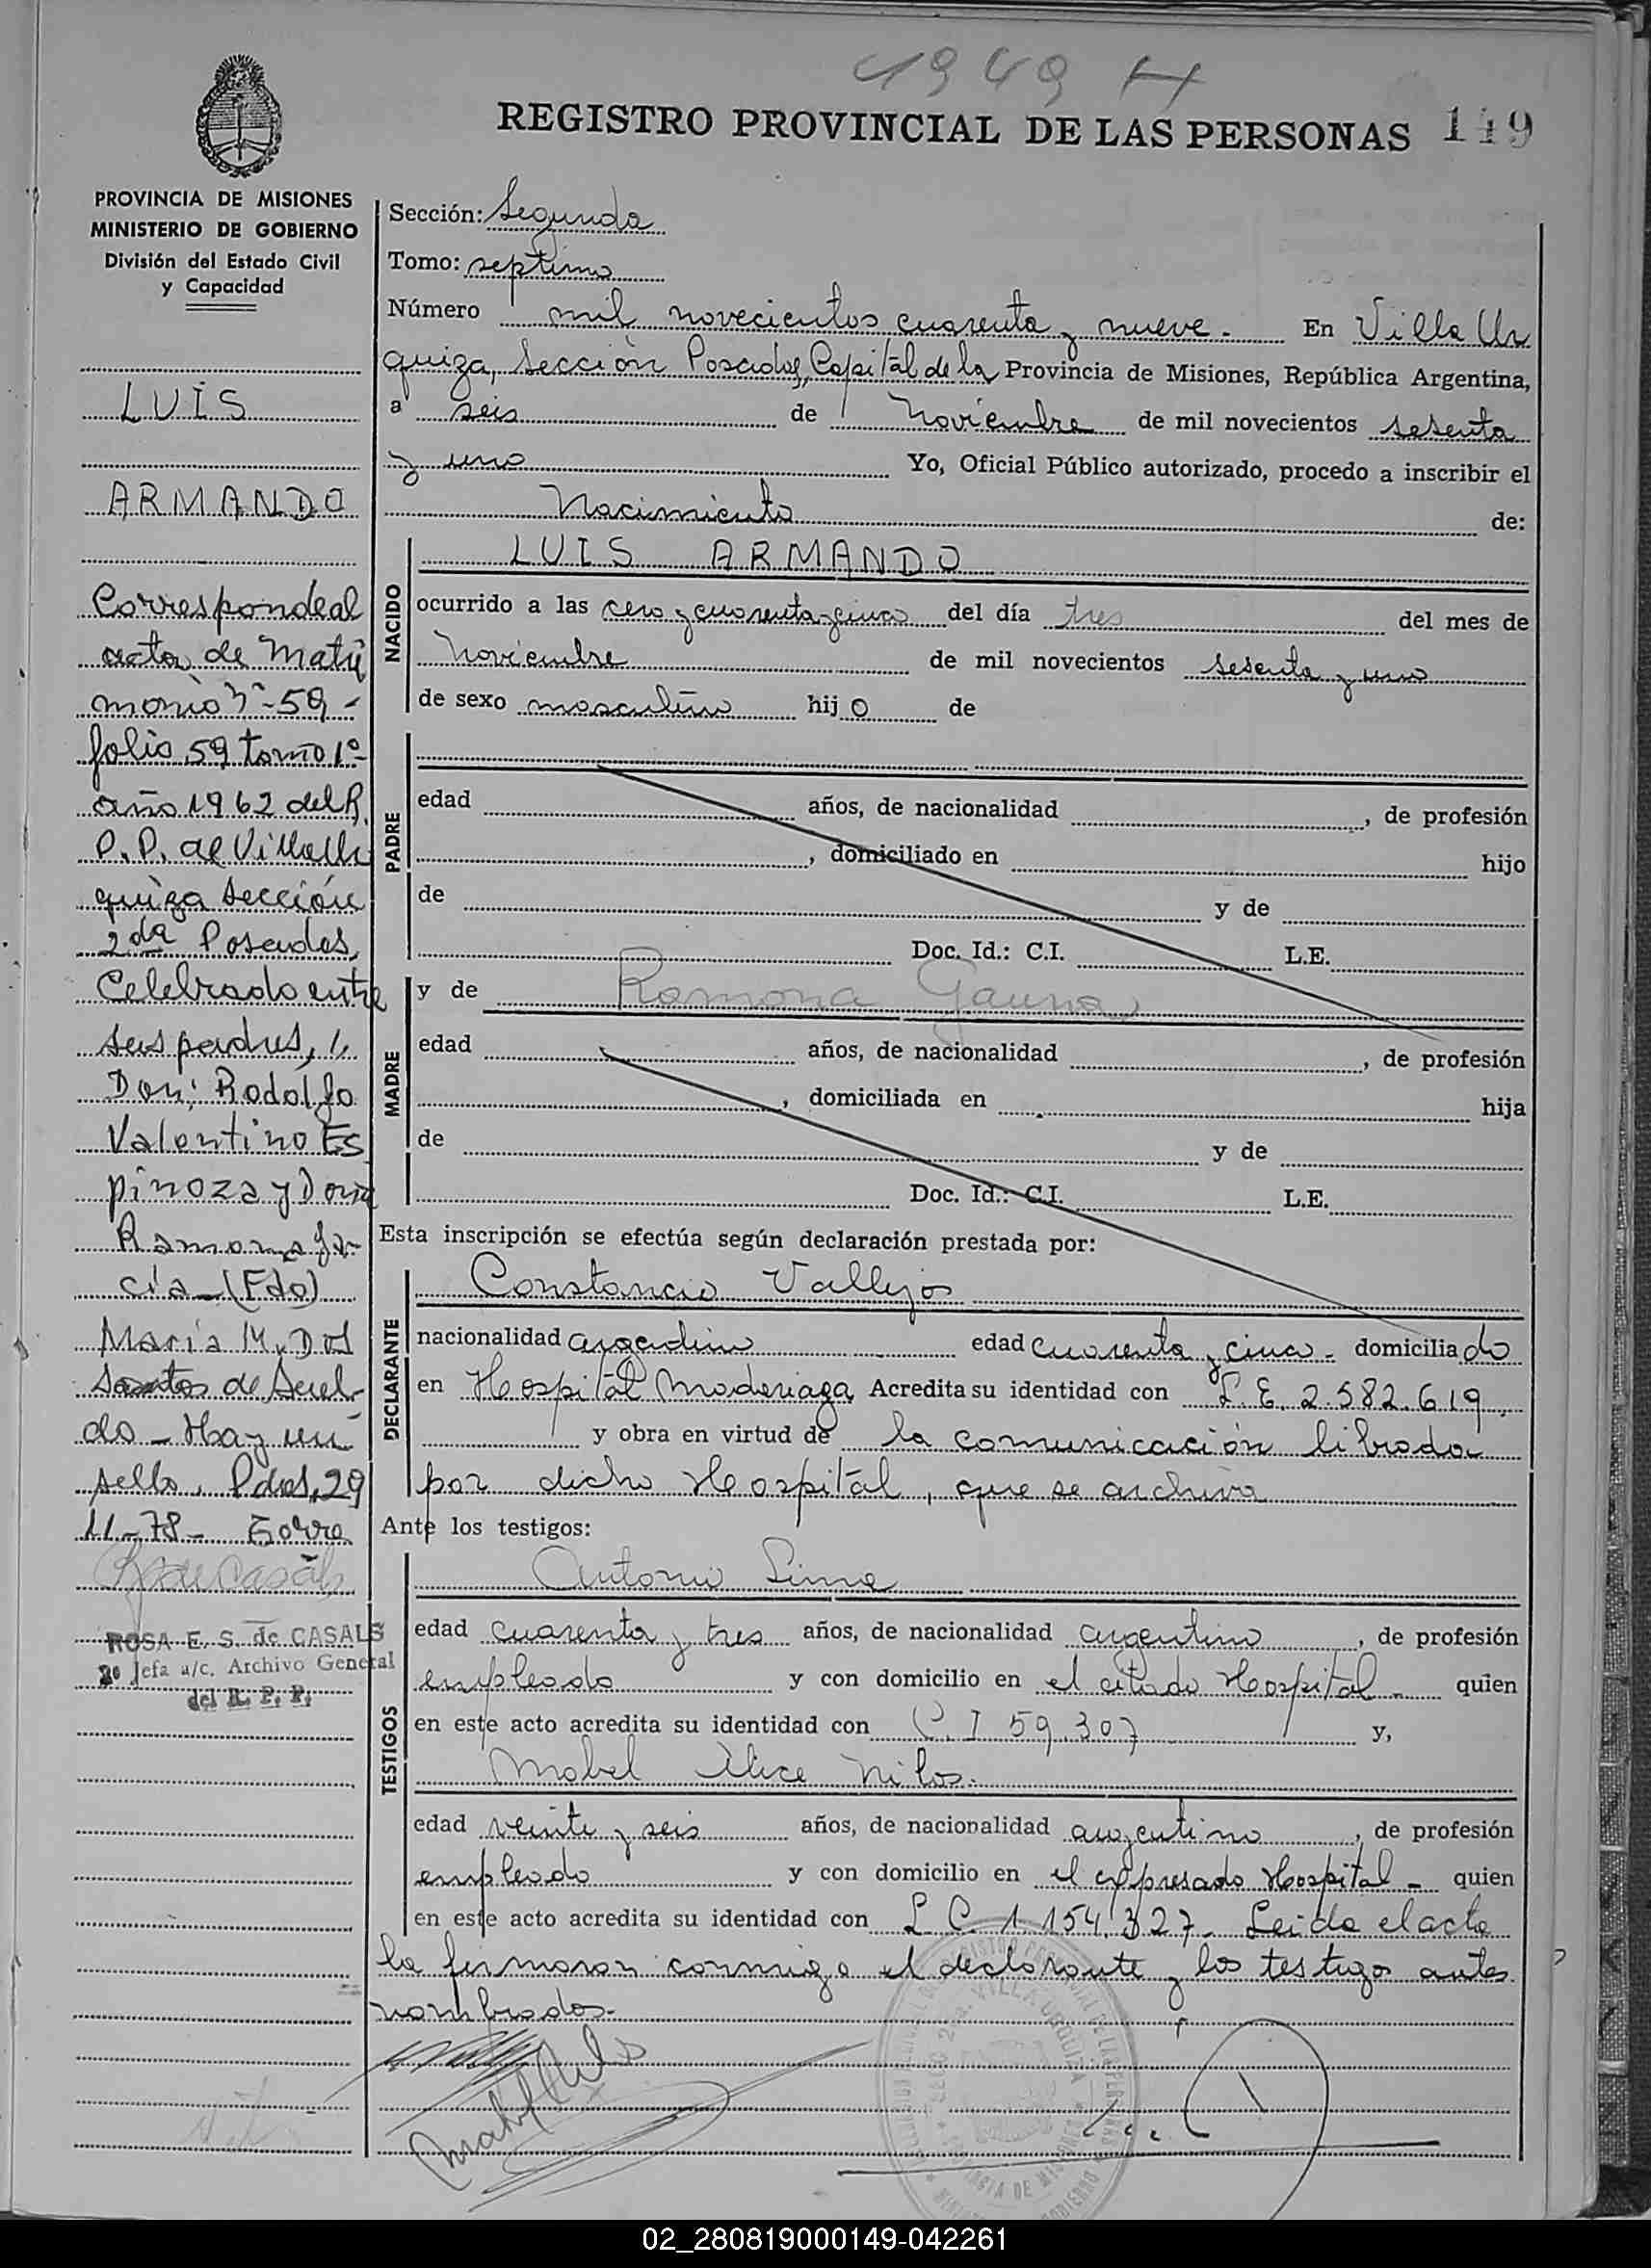 1949 H
REGISTRO PROVINCIAL DE LAS PERSONAS 149
PROVINCIA DE MISIONES
MINISTERIO DE GOBIERNO
División del Estado Civil
y Capacidad
LUIS
ARMANDO
Corresponde al
acta de Matri
monio Nº 59 -
folio 59 tomo 1º
año 1962 del R.
P.P. de Villa Ur
quiza Sección
2da Posadas,
Celebrado entre
sus padres,
Don: Rodolfo
Valentino Es
pinoza y Doña
Ramona Ga-
cía - (Fdo)
María M. Dos
Santos de
do - Hay un
sello. Pdas, 29
11-78 -
ROSA E. S. de CASALS
2º Jefa a/c. Archivo General
del R. P. P.
Sección: Segunda
Tomo: septimo
Número mil novecientos cuarenta y nueve.- En Villa Ur
quiza, Sección Posadas, Capital de la Provincia de Misiones, República Argentina,
a seis de Noviembre de mil novecientos sesenta
y uno Yo, Oficial Público autorizado, procedo a inscribir el
Nacimiento de:
NACIDO
LUIS ARMANDO
ocurrido a las cero y cuarenta y cinco del día tres del mes de
Noviembre de mil novecientos sesenta y uno
de sexo masculino hijo de
PADRE
edad años, de nacionalidad , de profesión
, domiciliado en hijo
de y de
Doc. Id.: C.I. L.E.
MADRE
y de Ramona Gauna
edad años, de nacionalidad , de profesión
, domiciliada en hija
de y de
Doc. Id.: C.I. L.E.
Esta inscripción se efectúa según declaración prestada por:
DECLARANTE
Constancio Vallejos
nacionalidad argentino edad cuarenta y cinco - domiciliado
en Hospital Madariaga Acredita su identidad con L.E. 2.582.619,
y obra en virtud de la comunicación librada
por dicho Hospital, que se archiva
Ante los testigos:
TESTIGOS
Antonio Lima
edad cuarenta y tres años, de nacionalidad argentino, de profesión
empleado y con domicilio en el citado Hospital - quien
en este acto acredita su identidad con C.I 59.307 y,
Mabel Alice Nilos.
edad veinte y seis años, de nacionalidad argentino, de profesión
empleado y con domicilio en el expresado Hospital - quien
en este acto acredita su identidad con L C 1.154.327 - Leida el acta
la firmaron conmigo el declarante y los testigos antes
nombrados.-
02_280819000149-042261